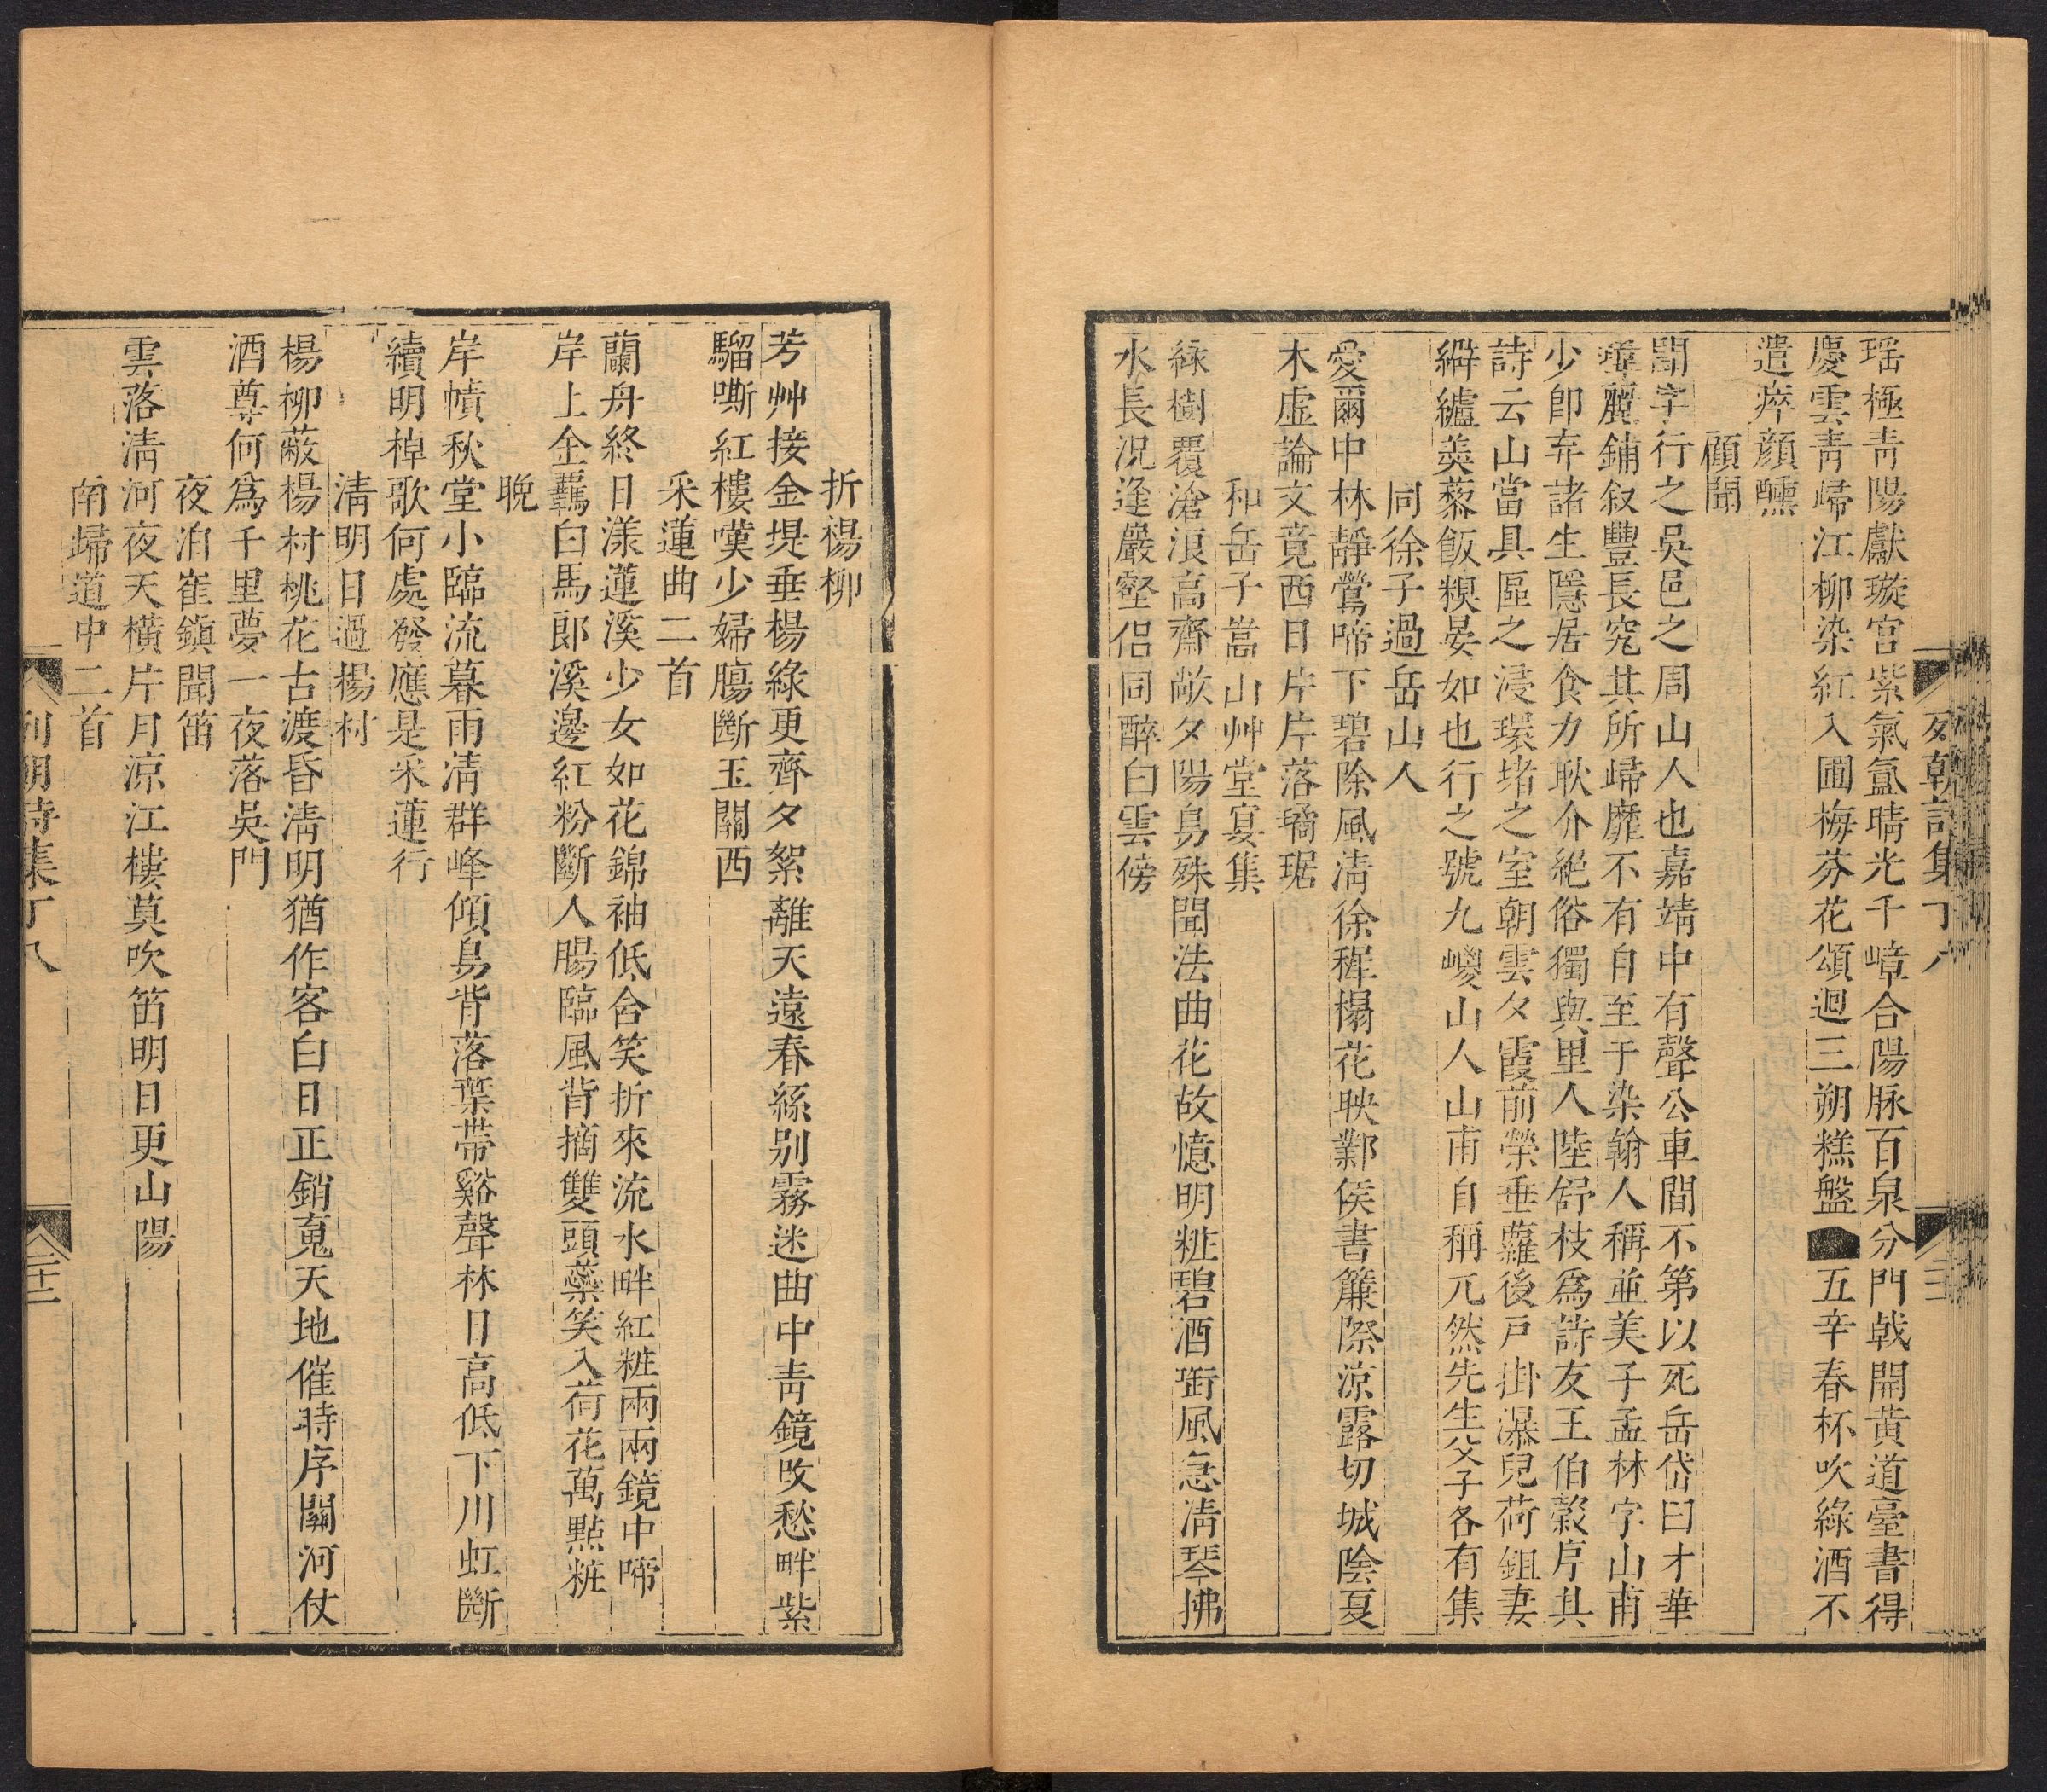 瑶極靑陽獻璇宮紫氣氳晴光千嶂合陽脉百泉分門戟開黃道臺書得
慶雲靑歸江柳染紅入圃梅芬花頌迴三朔糕盤五辛春杯吹綠酒不
遣瘁顔醺
顧聞
聞字行之吳邑之周山人也嘉靖中有聲公車間不第以死岳岱曰才華
瑋麗鋪叙豐長究其所歸靡不有自至于染翰人稱並美子孟林字山甫
少卽弃諸生隱居食力耿介絕俗獨與里人陸舒枝爲詩友王伯榖序其
詩云山當具區之浸環堵之室朝雲夕霞前榮垂蘿後戸掛瀑兒荷鉏妻
繲纑羮藜飯糗晏如也行之號九嵏山人山甫自稱兀然先生父子各有集
同徐子過岳山人
愛爾中林靜鶯啼下碧除風淸徐穉榻花映鄴侯書簾際凉露切城陰夏
木虛論文竟西日片片落璚琚
和岳子嵩山艸堂宴集
綠樹覆滄浪高齋敞夕陽鳥殊聞法曲花故憶明粧碧酒衝風急淸琴拂
水長況逢巖壑侶同醉白雲傍
列朝詩集丁八
折楊柳
芳艸接金堤垂楊綠更齊夕絮離天遠春絲別霧迷曲中靑鏡改愁畔紫
騮嘶紅樓嘆少婦膓斷玉關西
采蓮曲二首
蘭舟終日漾蓮溪少女如花錦袖低含笑折來流水畔紅粧兩兩鏡中啼
岸上金羈白馬郎溪邊紅粉斷人腸臨風背摘雙頭蘂笑入荷花萬點粧
晚
岸幘秋堂小臨流暮雨淸群峰傾鳥背落葉帶谿聲林日高低下川虹斷
續明棹歌何處發應是采蓮行
淸明日過楊村
楊柳蔽楊村桃花古渡昏淸明猶作客白日正銷䰟天地催時序關河仗
酒尊何爲千里夢一夜落吳門
夜泊崔鎭聞笛
雲落淸河夜天橫片月凉江樓莫吹笛明日更山陽
南歸道中二首
列朝詩集丁八
二十二